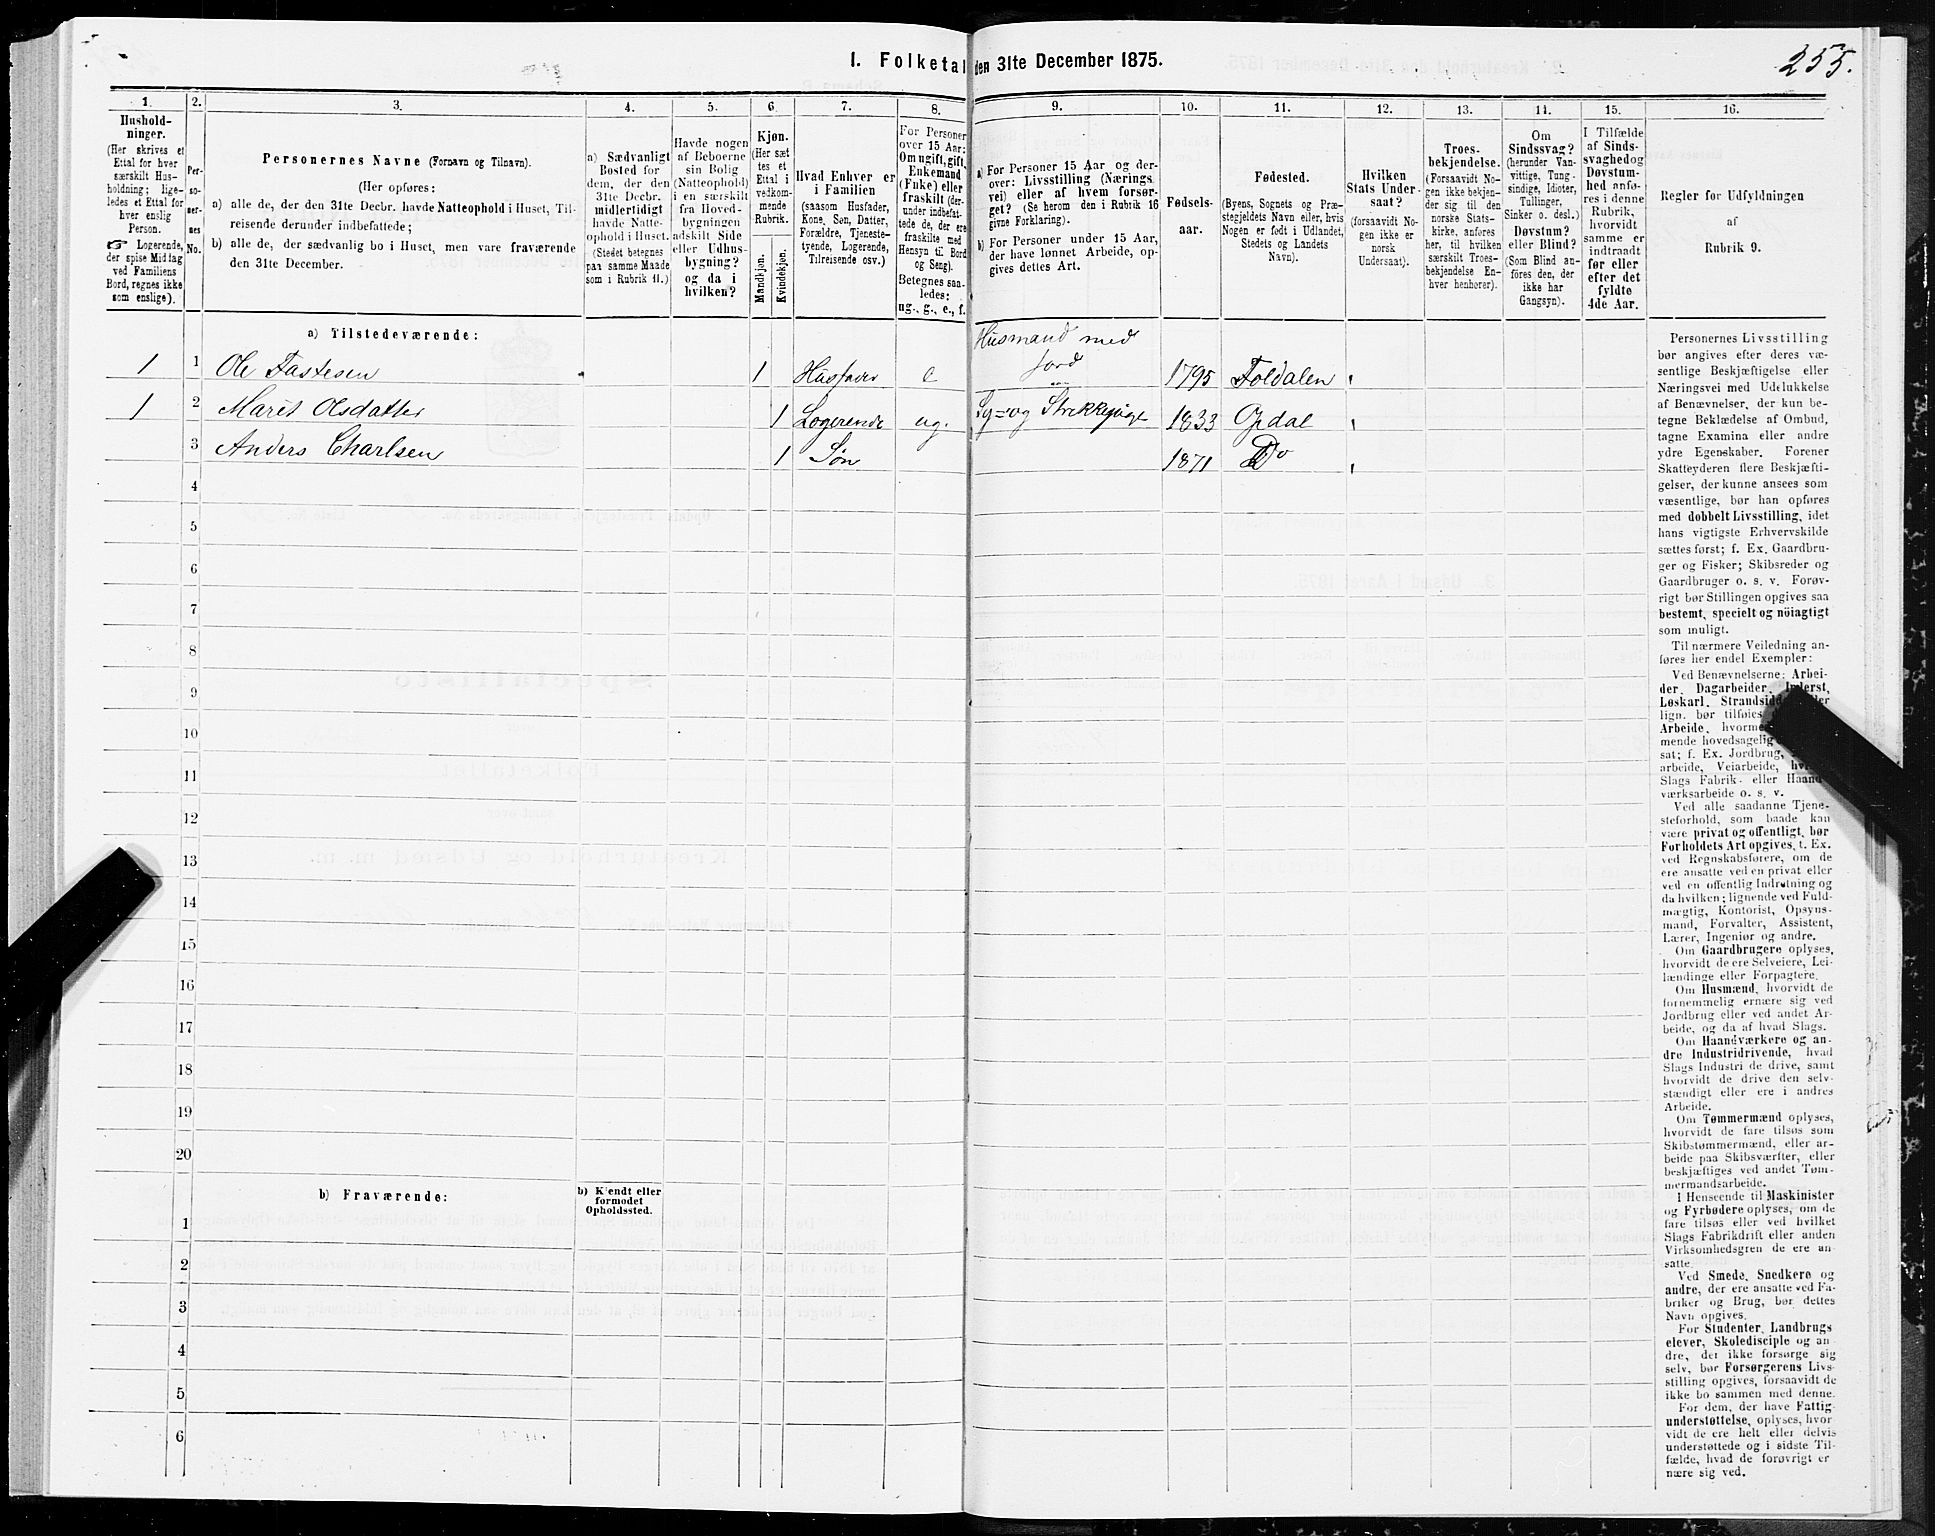 255.
1. Folketal den 31te December 1875.
1.
2.
3.
4.
5.
6.
7.
8.
9.
10.
11.
12.
13.
14.
15.
16.
Hushold-
ninger.
(Her skrives et
Ettal for hver
særskilt Hus-
holdning; lige-
ledes et Ettal for
hver enslig
Person.
☞ Logerende,
der spise Middag
ved Familiens
Bord, regnes ikke
som enslige).
Per-
so-
ner-
nes
No.
Personernes Navne (Fornavn og Tilnavn).
(Her opføres:
a) alle de, der den 31te Decbr. havde Natteophold i Huset, Til-
reisende derunder indbefattede;
b) alle de, der sædvanlig bo i Huset, men vare fraværende
den 31te December.
a) Sædvanligt
Bosted for
dem, der den
31te Decbr.
midlertidigt
havde Natte-
ophold i Huset.
(Stedet betegnes
paa samme Maade
som i Rubrik 11.)
Havde nogen
af Beboerne
sin Bolig
(Natteophold)
i en særskilt
fra Hoved-
bygningen
adskilt Side
eller Udhus-
bygning?
og da i
hvilken?
Kjøn.
(Her sæt
tes et
Ettal i
vedkom-
mende
Rubrik.
Mandkjøn.
Kvindekjøn.
Hvad Enhver er
i Familien
(saasom Husfader,
Kone, Søn, Datter,
Forældre, Tjeneste-
tyende, Logerende,
Tilreisende osv.)
For Personer
over 15 Aar:
Om ugift, gift,
Enkemand
(Enke) eller
fraskilt (der-
under indbefat-
tede de, der ere
fraskilte med
Hensyn til Bord
og Seng).
Betegnes saa-
ledes:
ug., g., e., f.
a) For Personer 15 Aar og der-
over: Livsstilling (Nærings
vei) eller af hvem forsør-
get? (Se herom den i Rubrik 16
givne Forklaring).
b) For Personer under 15 Aar,
der have lønnet Arbeide, op-
gives dettes Art.
Fødsels-
aar.
Fødested.
(Byens, Sognets og Præ-
stegjeldets Navn eller, hvis
Nogen er født i Udlandet,
Stedets og Landets
Navn).
Hvilken
Stats Under-
saat?
(forsaavidt No-
gen ikke er
norsk
Undersaat).
Troes-
bekjendelse.
(Forsaavidt No
gen ikke bekjen-
der sig til den
norske Stats-
kirke, anføres
her, til hvilken
særskilt Troes-
bekjendelse En-
hver henhører).
Om
Sindssvag?
(herunder Van-
vittige, Tung-
sindige, Idioter,
Tullinger,
Sinker o. desl.)
Døvstum?
eller Blind?
(Som Blind an-
føres den, der
ikke har
Gangsyn).
I Tilfælde
af Sinds-
svaghedog
Døvstum-
hed anfø-
res i denne
Rubrik,
hvorvidt
samme er
indtraadt
før eller
efter det
fyldte
4de Aar.
Regler for Udfyldningen
af
Rubrik 9.
a) Tilstedeværende:
1 1 Ole Fastesen 1 Husfader e Husmand med Jord 1795 Foldalen
1 2 Marit Olsdatter 1 Logerende ug. Sy= og Strikkepige 1833 Opdal
3 Anders Charlsen 1 Søn 1871 Do
4
5
6
7
8
9
10
11
12
13
14
15
16
17
18
19
20
b) Fraværende:
b) Kjendt eller
formodet
Opholdssted.
1
2
3
4
5
6
Personernes Livsstilling
bør angives efter deres væ-
sentlige Beskjæftigelse eller
Næringsvei med Udelukkelse
af Benævnelser, der kun be-
tegne Beklædelse af Ombud,
tagne Examina eller andre
ydre Egenskaber. Forener
Skatteyderen flere Beskjæfti-
gelser, der kunne ansees som
væsentlige, bør han opføres
med dobbelt Livsstilling, idet
hans vigtigste Erhvervskilde
sættes først; f. Ex. Gaardbru-
ger og Fisker; Skibsreder og
Gaardbruger o. s. v. Forøv-
rigt bør Stillingen opgives saa
bestemt, specielt og nöiagtigt
som muligt.
Til nærmere Veiledning an-
føres her endel Exempler:
Ved Benævnelserne: Arbei-
der, Dagarbeider, Inderst,
Løskarl, Strandsidd
lign. bør tilføies
Arbeide, hvorme
mende hovedsagelig
sat; f. Ex. Jordbrug,
arbeide, Veiarbeide,
Slags Fabrik- eller Haand-
værksarbeide o. s. v.
Ved alle saadanne Tjene-
steforhold, som baade kan
være privat og offentligt, bør
Forholdets Art opgives, f. Ex.
ved Regnskabsførere, om de
ere ansatte ved en privat eller
ved en offentlig Indretning og
da hvilken; lignende ved Fuld-
mægtig, Kontorist, Opsyns-
mand, Forvalter, Assistent,
Lærer, Ingeniør og andre.
Om Gaardbrugere oplyses,
hvorvidt de ere Selveiere, Lei-
lændinge eller Forpagtere.
Om Husmænd, hvorvidt de
fornemmelig ernære sig ved
Jordbrug eller ved andet Ar-
beide, og da af hvad Slags.
Om Haandværkere og an-
dre Industridrivende, hvad
Slags Industri de drive, samt
hvorvidt de drive den selv-
stændigt eller ere i andres
Arbeide.
Om Tømmermænd oplyses,
hvorvidt de fare tilsøs som
Skibstømmermænd, eller ar-
beide paa Skibsværfter, eller
beskjæftiges ved andet Tøm-
mermandsarbeide.
I Henseende til Maskinister
og Fyrbødere oplyses, om de
fare tilsøs eller ved hvilket
Slags Fabrikdrift eller anden
Virksomhedsgren de ere an-
satte.
Ved Smede, Snedkere og
andre, der ere ansatte ved Fa-
briker og Brug, bør dettes
Navn opgives.
For Studenter, Landbrugs
elever, Skoledisciple og an
dre, der ikke forsørge sig
selv, bør Forsørgerens Livs-
stilling opgives, forsaavidt de
ikke bo sammen med denne.
For dem, der have Fattig-
understøttelse, oplyses, hvor-
vidt de ere helt eller delvis
understøttede og i sidste Til-
fælde, hvad de forøvrigt er
nære sig ved.